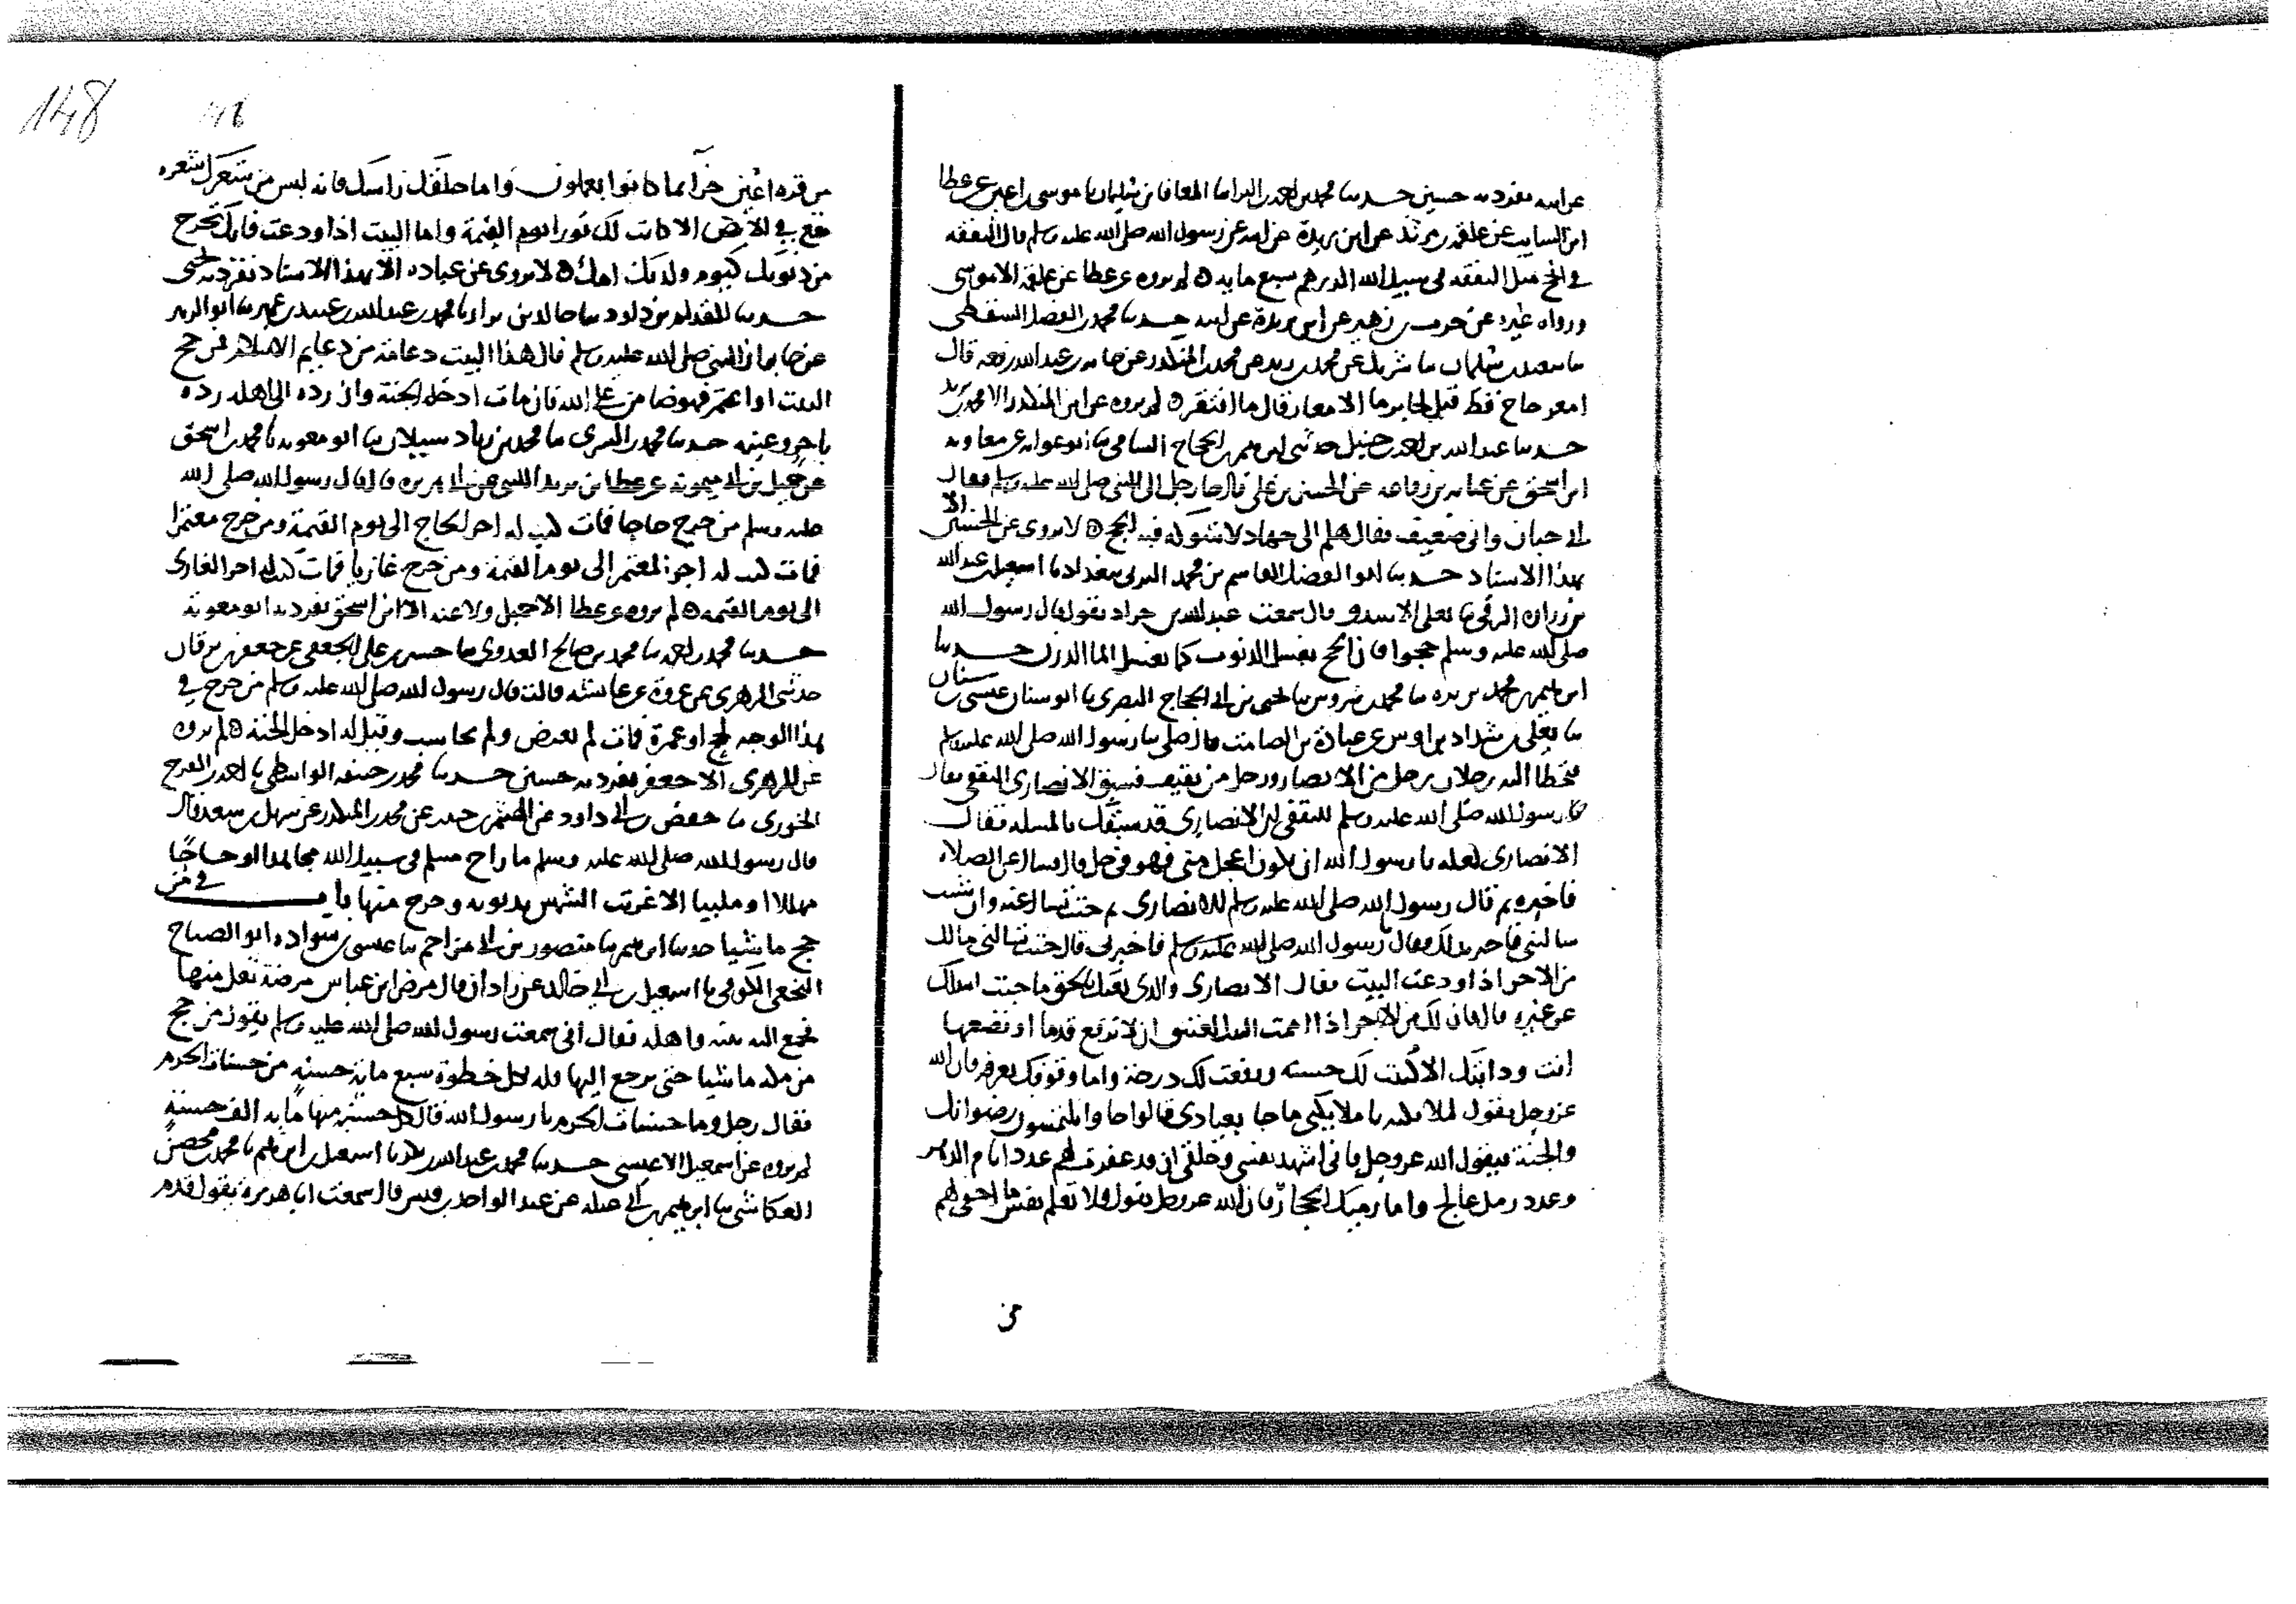 148
عن ابيه تفرد به حسين حدثنا محمد بن احمد بن البرا ما المعافا بن سليمان ما موسى بن اعين عن عطا
ابن السايب عن علقمة بن مرثد عن ابن بريدة عن ابيه عن رسول الله صلى الله عليه وسلم قال النفقة
في الحج مثل النفقة في سبيل الله الدرهم سبع ماية ه لم يروه عن عطا عن علقمة الا موسى
ورواه غيره عن حرب بن زهير عن ابن بريدة عن ابيه حدثنا محمد بن الفضل السقطي
ما سعيد بن سليمان ما شريك عن محمد بن زيد عن محمد بن المنكدر عن جابر بن عبد الله رفعه قال
امعر حاج قط قيل لجابر ما الامعار قال ما افتقر ه لم يروه عن ابن المنكدر الا محمد بن زيد
حدثنا عبد الله بن احمد بن حنبل حدثني ابرهيم بن الحجاج السامي ما ابو عوانه عن معاويه
ابن اسحق عن عبايه بن رفاعه عن الحسين بن علي قال جا رجل الى النبي صلى الله عليه وسلم فقال
اني جبان واني ضعيف فقال هلم الى جهاد لا شوكة فيه الحج ه لا يروى عن الحسين الا
بهذا الاسناد حدثنا ابو الفضل القاسم بن محمد البرتي ببغداد ما اسمعيل بن عبد الله
بن زراره الرقي ما يعلى بن الاسدق قال سمعت عبد الله بن جراد يقول قال رسول الله
صلى الله عليه وسلم حجوا فان الحج يغسل الذنوب كما يغسل الما الدرن حدثنا
ابرهيم بن محمد بن بره ما محمد بن شروس ما يحيى بن ابي الحجاج البصري ما ابو سنان عيسى بن سنان
ما يعلى بن شداد بن اوس عن عبادة بن الصامت قال صلى بنا رسول الله صلى الله عليه وسلم
فتخطا اليه رجلان رجل من الانصار ورجل من ثقيف فسبق الانصاري الثقفي فقال
رسول الله صلى الله عليه وسلم للثقفي ان الانصاري قد سبقك بالمسلة فقال
الانصاري لعله يا رسول الله ان يكون اعجل مني فهو في حل قال فسال عن الصلاة
فاخبره ثم قال رسول الله صلى الله عليه وسلم للانصاري جئت تسال عنه وان شيت
سالتني فاخبرك بذلك فقال يا رسول الله صلى الله عليه وسلم فاخبرني قال جئت تسالني مالك
من الاجر اذا ودعت البيت فقال الانصاري والذي بعثك بالحق ما جئت اسالك
عن غيره قال فان لك من الاجر اذا اممت البيت العتيق ان لا ترفع قدما او تضعها
انت ودابتك الا كتبت لك حسنه ورفعت لك درجة واما وقوفك بعرفه فان الله
عز وجل يقول لملائكته يا ملايكتي ما جا بعبادي قالوا جاوا يلتمسون رضوانك
والجنة فيقول الله عز وجل فاني اشهد نفسي وخلقي اني قد غفرت لهم عدد ايام الدهر
وعدد رمل عالج واما رميك الجمار فان الله عز وجل يقول فلا تعلم نفس ما اخفي لهم
من
من قرة اعين جزآ بما كانوا يعملون واما حلقك راسك فانه ليس من شعرك شعره
تقع في الارض الا كانت لك نورا يوم القيمة واما البيت اذا ودعت فانك تخرج
من ذنوبك كيوم ولدتك امك ه لا يروى عن عباده الا بهذا الاسناد تفرد به يحيى
حدثنا المقدام بن داود ما خالد بن نزار ما محمد بن عبد الله بن عبيد بن عمير عن ابو الزبير
عن جابر ان النبي صلى الله عليه وسلم قال هذا البيت دعامة من دعايم الاسلام فمن حج
البيت او اعتمر فهو ضامن على الله فان مات ادخله الجنة وان رده الى اهله رده
باجر وغنيمه حدثنا محمد بن السري ما محمد بن زياد سبلان ما ابو معويه ما محمد بن اسحق
عن جميل بن ابي ميمونه عن عطا بن يزيد الليثي عن ابي هريرة قال قال رسول الله صلى الله
عليه وسلم من خرج حاجا فمات كتب له اجر الحاج الى يوم القيمة ومن خرج معتمرا
فمات كتب له اجر المعتمر الى يوم القيمة ومن خرج غازيا فمات كتب له اجر الغازي
الى يوم القيمه ه لم يروه عن عطا الا جميل ولا عنه الا ابن اسحق تفرد به ابو معويه
حدثنا محمد بن احمد ما محمد بن صالح العدوي ما حسين بن علي الجعفي عن جعفر بن برقان
حدثني الزهري عن عروة عن عايشه قالت قال رسول الله صلى الله عليه وسلم من خرج في
هذا الوجه لحج او عمرة فمات لم يعرض ولم يحاسب وقيل له ادخل الجنة ه لم يروه
عن الزهري الا جعفر تفرد به حسين حدثنا محمد بن حنيفه الواسطي ما احمد بن الفرج
الجوري ما حفص بن ابي داود عن الهيثم بن حبيب عن محمد بن المنكدر عن سهل بن سعد قال
قال رسول الله صلى الله عليه وسلم ما راح مسلم في سبيل الله مجاهدا او حاجا
مهللا او ملبيا الا غربت الشمس بذنوبه وخرج منها باب في من
حج ماشيا حدثنا ابرهيم ما منصور بن ابي مزاحم ما عيسى بن سواده ابو الصباح
النخعي الكوفي ما اسمعيل بن ابي خالد عن زاذان قال مرض ابن عباس مرضة ثقل منها
فجمع اليه بنيه واهله فقال اني سمعت رسول الله صلى الله عليه وسلم يقول من حج
من مكه ماشيا حتى يرجع اليها فله بكل خطوة سبع مائة حسنة من حسنات الحرم
فقال رجل وما حسنات الحرم يا رسول الله قال كل حسنة منها ماية الف حسنة
لم يروه عن اسمعيل الا عيسى حدثنا محمد بن عبد الله بن بكر ما اسمعيل بن ابرهيم ما محمد بن محصن
العكاشي ما ابرهيم بن ابي عبله عن عبد الواحد بن قيس قال سمعت ابا هريرة يقول قدم